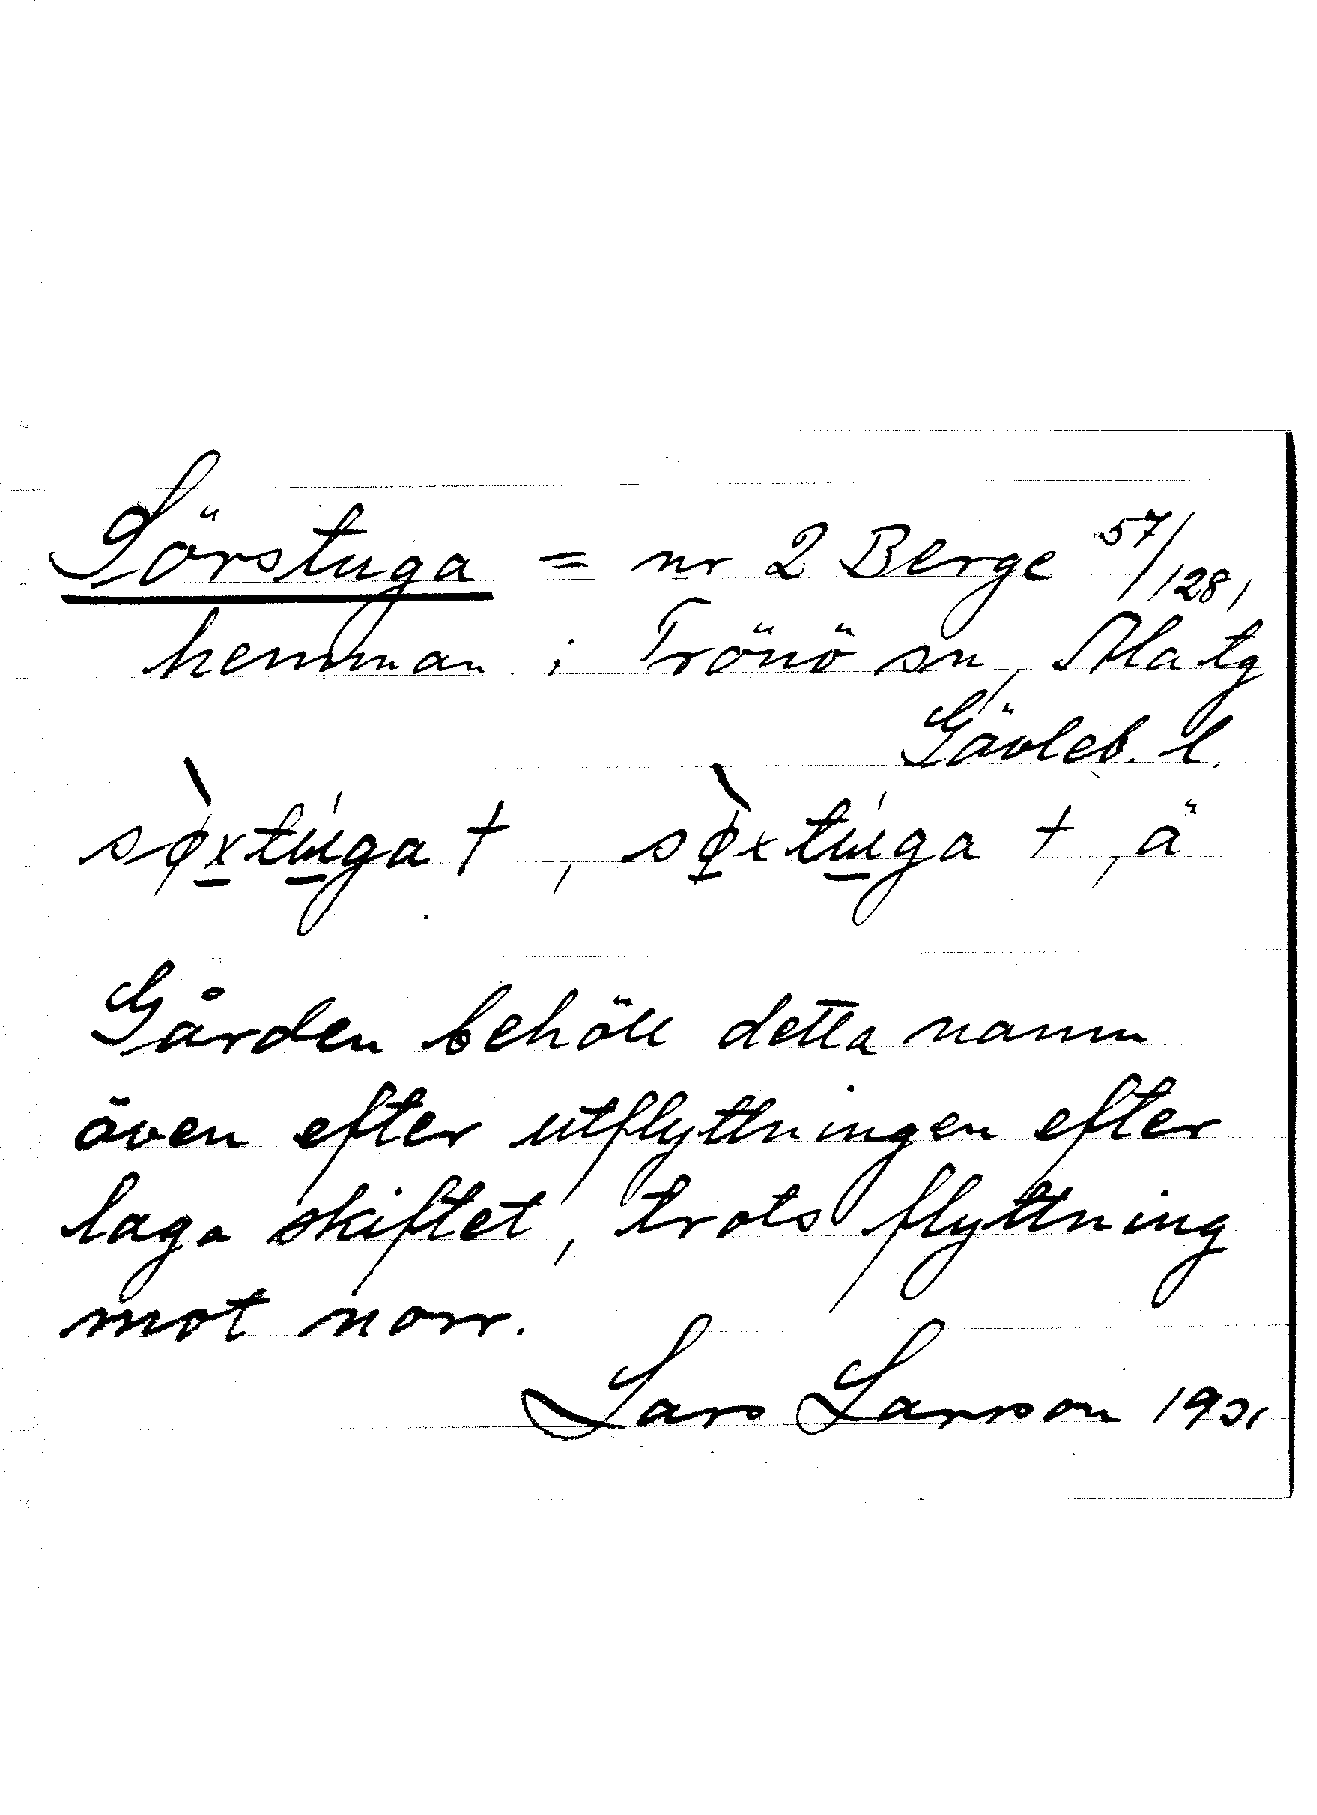 Sörstuga = nr 2 Berge 57/128,
hemman i Trönö sn, Ala tg
Gävleb. l.
sø̀xtú̱ga †, sø̱̀xtú̱ga †, ä
Gården behöll detta namn
även efter utflyttningen efter
laga skiftet, trots flyttning
mot norr.
Lars Larsson 1931